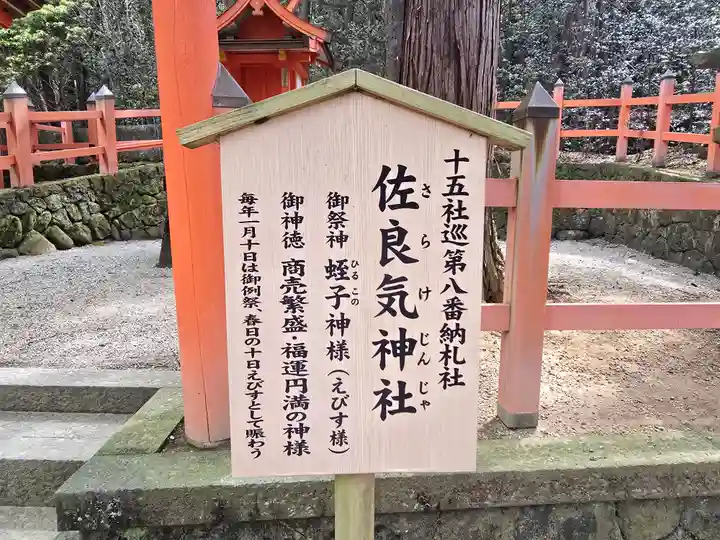 十五社巡第八番納札社
佐良気神社
さらけじんじゃ
御祭神 蛭子神様(えびす様)
ひるこの
御神徳 商売繁盛・福運円満の神様
毎年一月十日は御例祭、春日の十日えびすとして賑わう